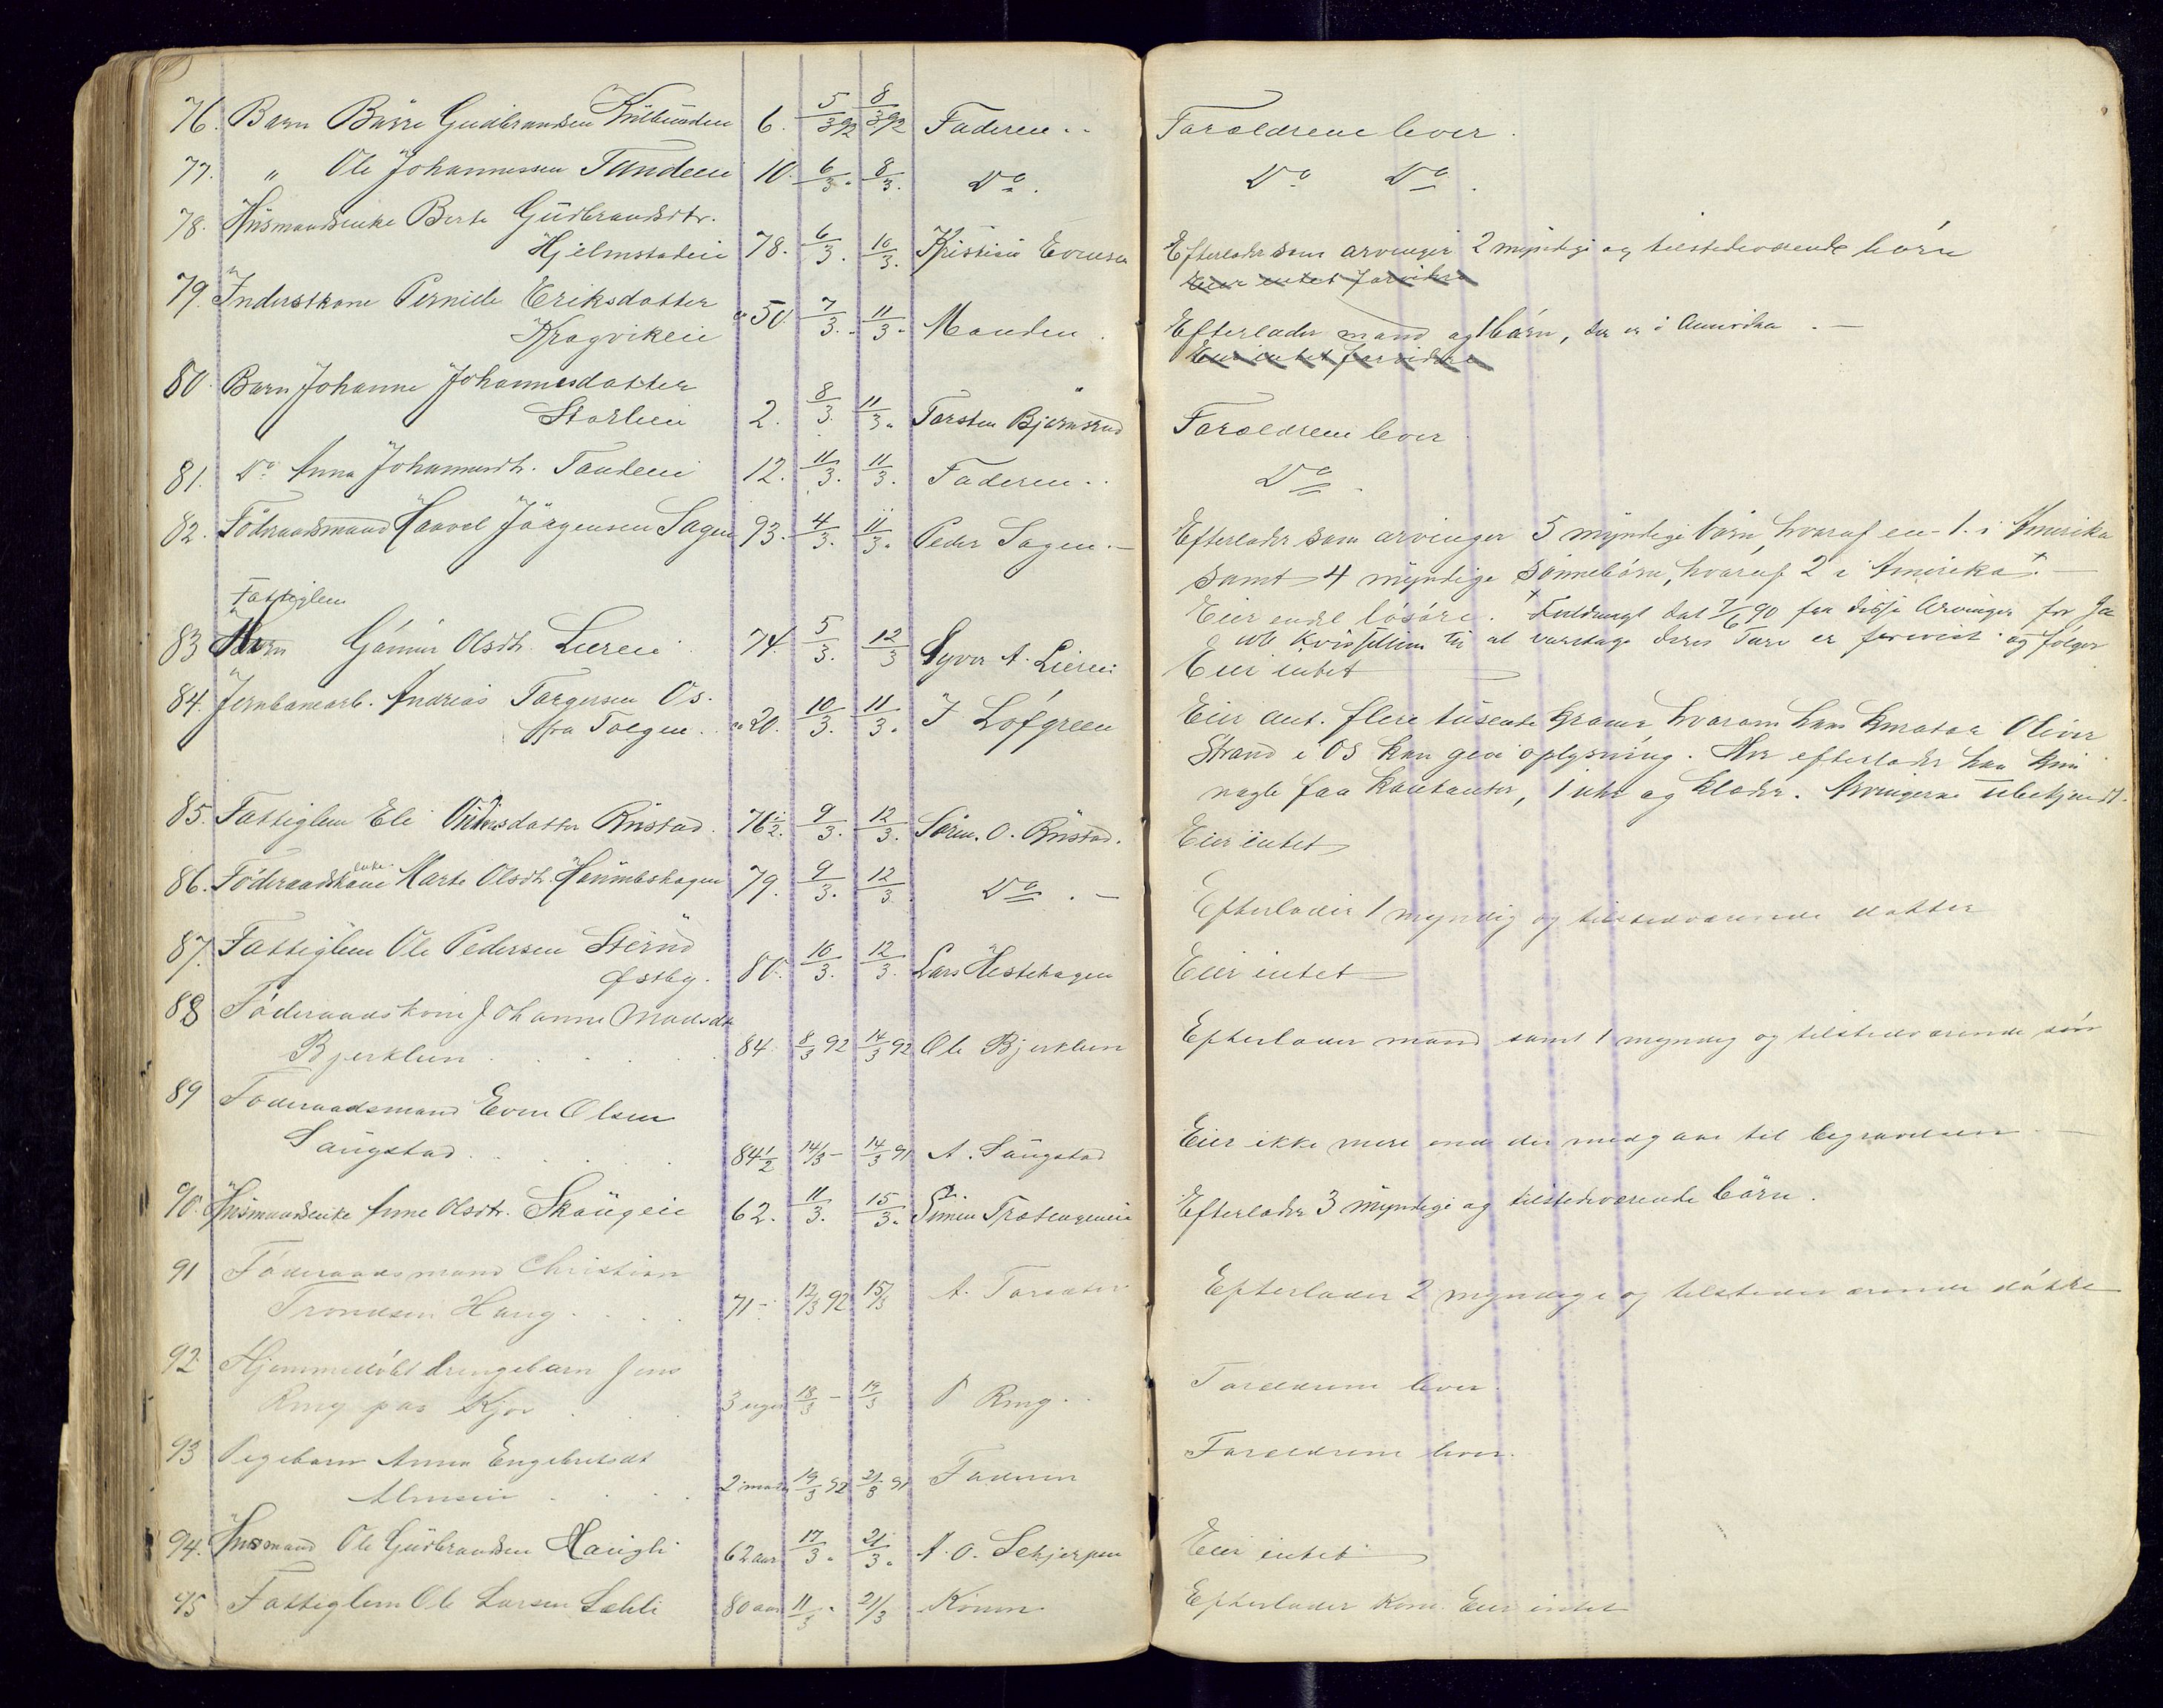 76. Barn Børre Gudbrandsen 6. 5/3 92 8/3 92 Faderen Forældrene lever.
77. " Ole Johannessen Tandeie 10. 6/3. 8/3. Do. Do Do.
78. Husmandsenke Berte Gudbrandsdtr.
Hjelmstadeie 78. 6/3. 10/3. Kristian Evensen Efterlader som arvinger 2 myndige og tilstedeværende børn
Eier intet forvidere
79. Inderstkone Pernille Eriksdatter
Kragvikeie ca 50. 7/3. 11/3. Manden. Efterlader mand og 1 børn, der er i Amerika. —
Eier intet forvidere
80. Barn Johanne Johannesdatter
Storlieie 2. 8/3. 11/3. Torsten Bjørnsrud Forældrene lever
81. Do Anna Johannesdtr. Tandeie 12. 11/3. 11/3. Faderen. Do.
82. Føderaadsmand Haavel Jørgensen Sagen 93. 4/3. 11/3. Peder Sagen. — Efterlader som arvinger 5 myndige børn, hvoraf en 1. i Amerika
samt 4 myndige sønnebørn, hvoraf 2 i Amerika +. —
Eier endel løsøre. + Fuldmagt dat 7/6 90 fra disse Arvinger for
Kvisellien til at varetage deres Tarv er forevist og følger
Fattiglem
83 Barn Gunnor Olsdtr. Liereie 74. 5/3. 12/3 Syver A. Liereie Eier intet
84. Jernbanearb. Andreas Torgersen Os.
fra Tolgen. ca 20. 10/3. 11/3. J Løfgreen Eier ant. flere tusende Kroner hvorom hans kurator Oliver
Strand i Os kan give oplysning. Her efterlader han kun
nogle faa kontanter, 1 uhr og klæder. Arvingerne ubekjendt.
85. Fattiglem Eli Rustad. 76 1/2. 9/3. 12/3. Søren. O. Rustad. Eier intet
86. Føderaadskone enke Marte Olsdtr. 79. 9/3. 12/3 Do. — Efterlader 1 myndig og tilstedeværende datter
87. Fattiglem Ole Pedersen Sterud
Østby. 80. 10/3. 12/3. Lars Hestehagen Eier intet
88 Føderaadskone Johanne Madsdtr
Bjerklien 84. 8/3 92 14/3 92 Ole Bjerklien Efterlader mand samt 1 myndig og tilstedeværende søn
89 Føderaadsmand Even Olsen
Saugstad. 84 1/2 14/3 — 14/3 91 A. Saugstad Eier ikke mere end der medgaar til begravelsen —
90. Husmandsenke Anne Olsdtr. Skaugeie 62. 11/3. 15/3. Simen Efterlader 3 myndige og tilstedeværende børn.
91 Føderaadsmand Christian
Trondsen Haug 71 — 12/3 92 15/3 A. Efterlader 2 myndige og tilstedeværende døttre
92. Hjemmedøbt drengebarn Jens
Ring paa Kjos 3 uger 18/3 — 19/3 P Ring. Forældrene lever.
93 Pigebarn Anna Engebretsdt
2 mader 19/3 92 21/3 91 Faderen Forældrene lever.
94. Husmand Ole Gudbrandsen Haugli 62 aar 17/3. 21/3. A. O. Schjerpen Eier intet
95 Fattiglem Ole Larsen Læhli 80 aar 11/3 21/3 Konen Efterlader Kone. Eier intet